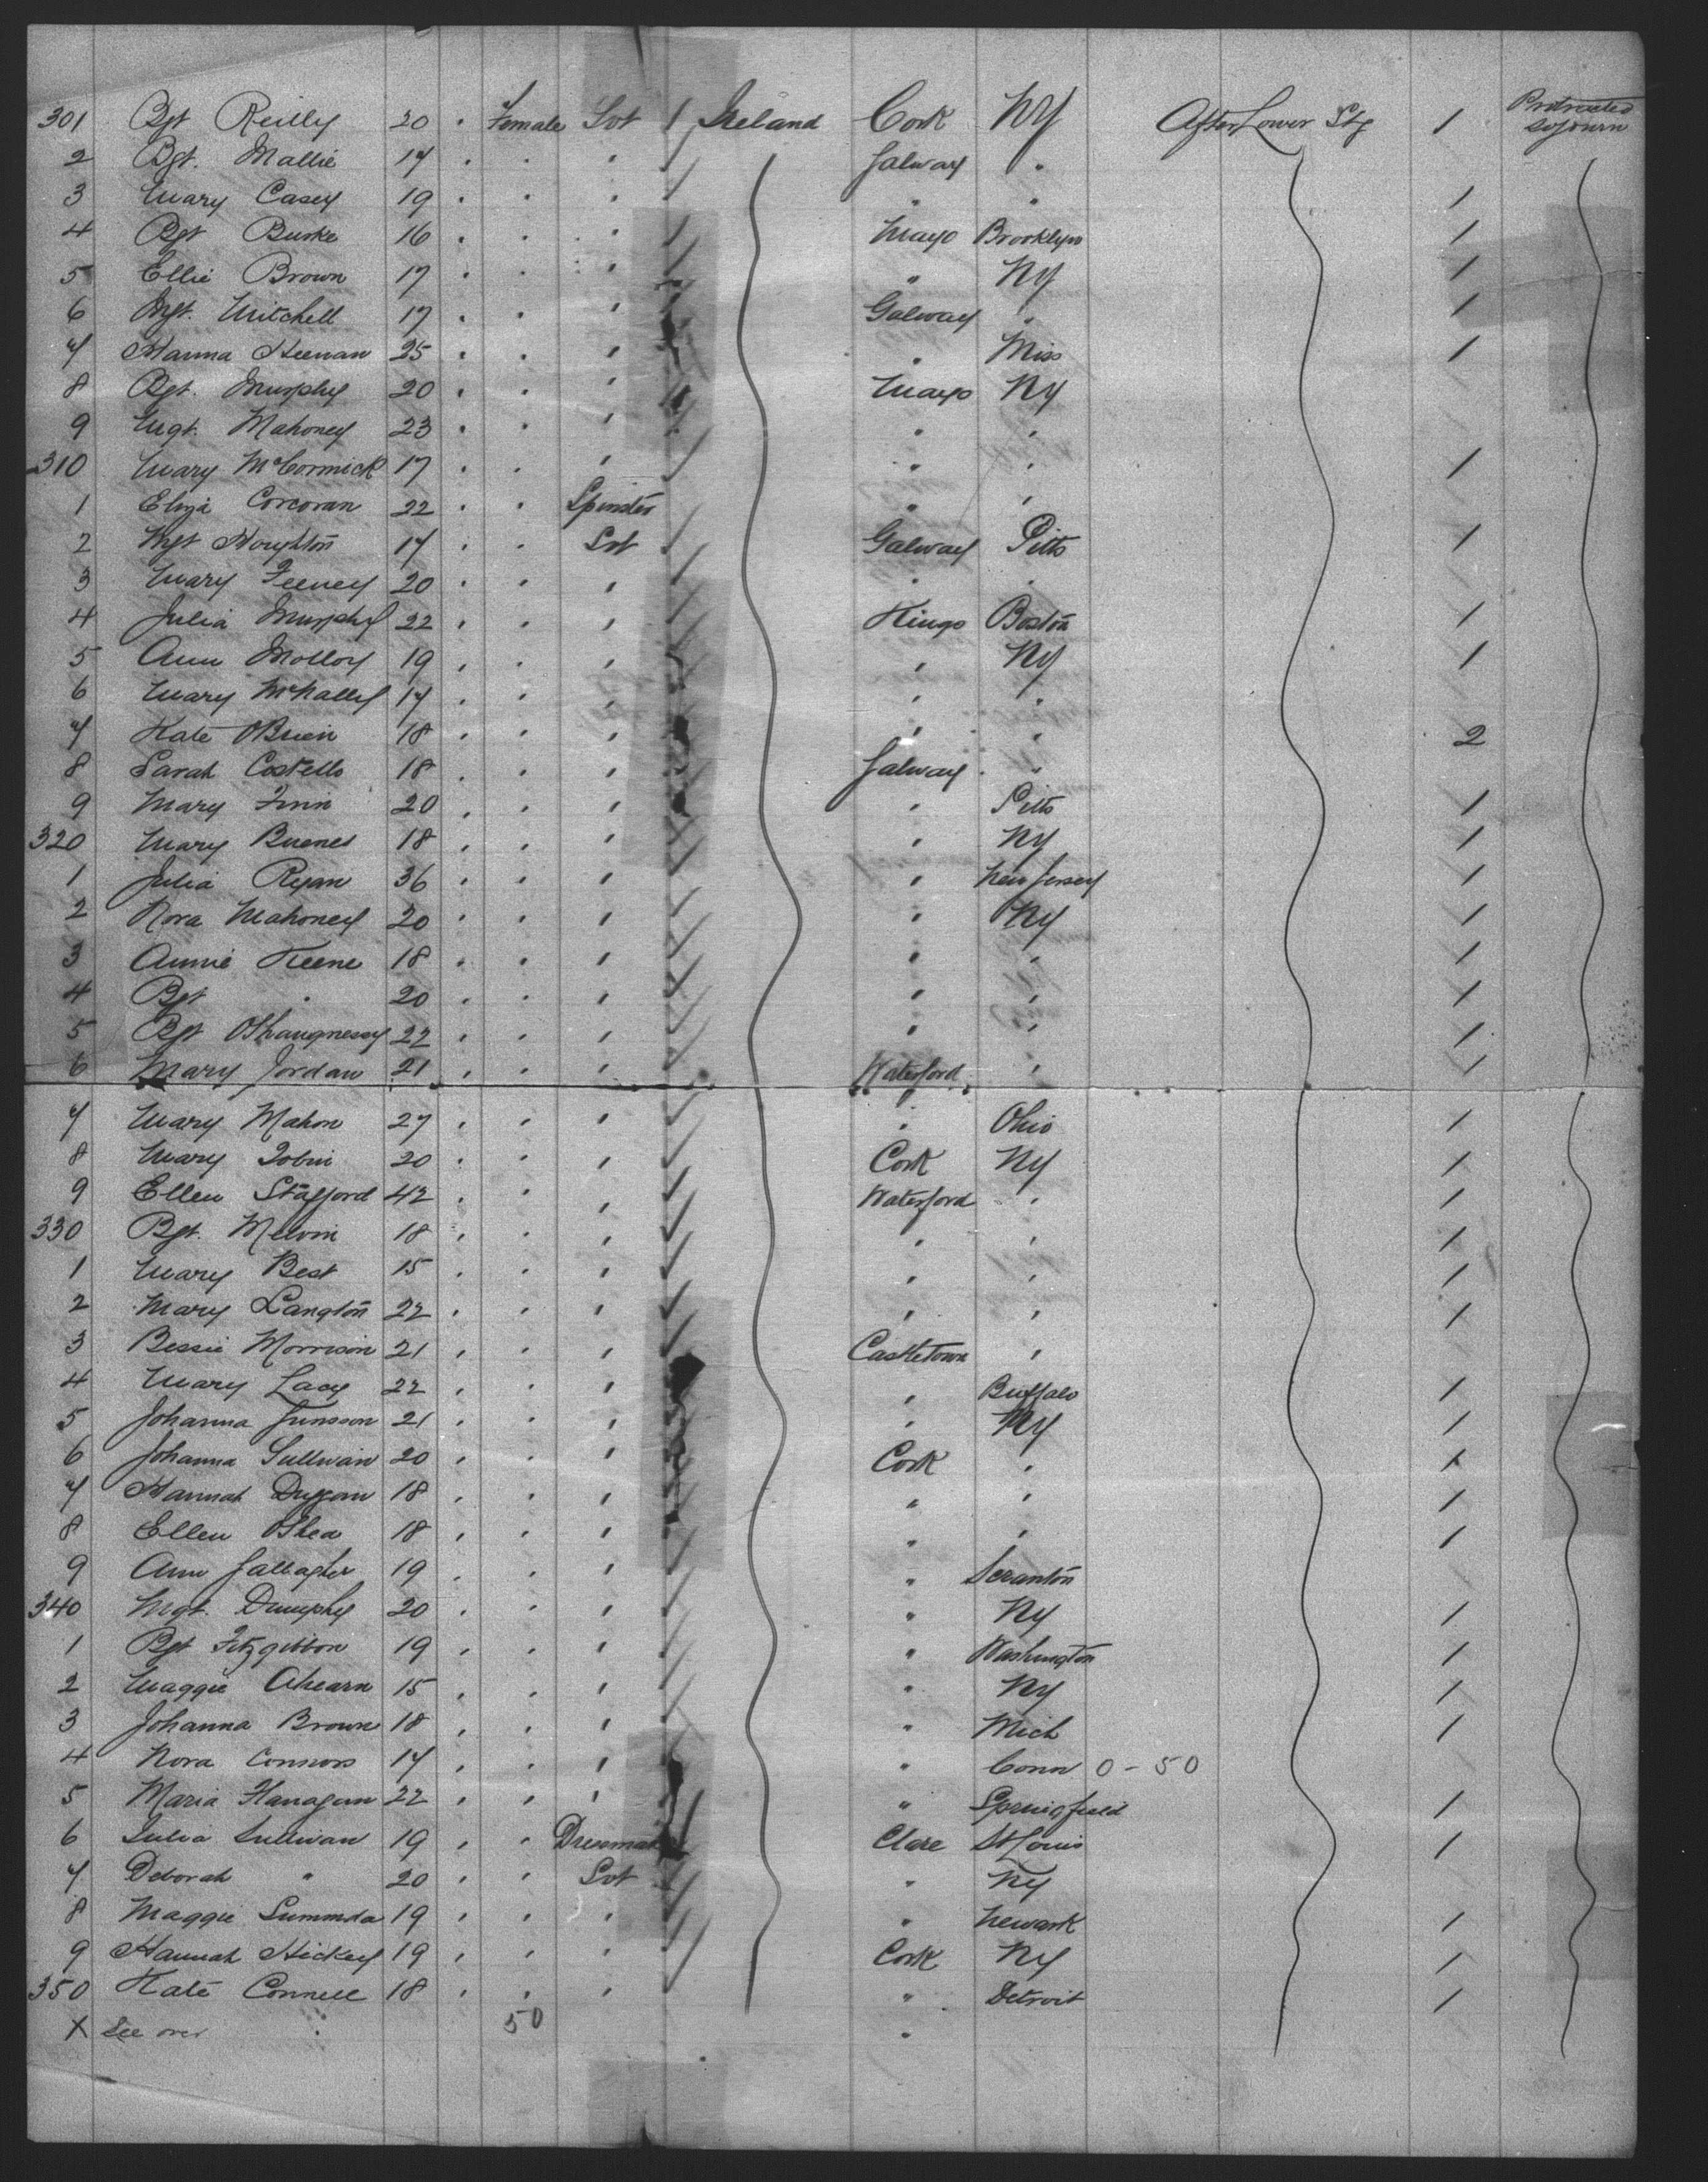 301 Bgt Reilly 20 " Female Svt / Ireland Cork NY After Lower Stg / Protracted sojourn
2 Bgt. Mallie 17 " " " / Galway "
3 Mary Casey 19 " " " / " " /
4 Bgt Burke 16 " " " / Mayo Brooklyn /
5 Ellie Brown 17 " " " / " NY /
6 Mgt. Mitchell 17 " " " / Galway " /
7 Hanna Heenan 25 " " " / " Miss /
8 Bgt. Murphy 20 " " " / Mayo NY
9 Mgt. Mahoney 23 " " " / " "
310 Mary McCormick 17 " " " / " " /
1 Eliza Corcoran 22 " " Spinster " "
2 Mgt Houghton 17 " " Svt / Galway Pitts /
3 Mary Feeney 20 " " " / " "
4 Julia Murphy 22 " " " / Kings Boston /
5 Ann Molloy 19 " " " / " NY /
6 Mary McNally 17 " " " / " "
7 Kate OBrien 18 " " " / " " 2
8 Sarah Costello 18 " " " / Galway "
9 Mary Finn 20 " " " / " Pitts /
320 Mary Buenes 18 " " " / " NY /
1 Julia Ryan 36 " " " / " New Jersey /
2 Nora Mahoney 20 " " " / " NY /
3 Annie Keene 18 " " " / " " /
4 Bgt " 20 " " " / " " /
5 Bgt OShaugnessy 22 " " " / " " /
6 Mary Jordan 21 " " " / Waterford " /
7 Mary Mahon 27 " " " / " Ohio /
8 Mary Tobin 20 " " " / Cork NY /
9 Ellen Stafford 42 " " " / Waterford " /
330 Bgt. Melvin 18 " " " / " " /
1 Mary Best 15 " " " / " " /
2 Mary Langton 22 " " " / " " /
3 Bessie Morrison 21 " " " / Castletown "
4 Mary Lacy 22 " " " / " Buffalo /
5 Johanna 21 " " " / " NY /
6 Johanna Sullivan 20 " " " / Cork " /
7 Hannah Duggan 18 " " " / " " /
8 Ellen OShea 18 " " " / " " /
9 Ann Gallagher 19 " " " / " Scranton
340 Mgt. Dumphy 20 " " " / " NY /
1 Bgt Fitzgibbon 19 " " " / " Washington /
2 Maggie Ahearn 15 " " " / " NY /
3 Johanna Brown 18 " " " / " Mich /
4 Nora Connors 17 " " " / " Conn 0 - 50
5 Maria Flanagan 22 " " " / " Springfield /
6 Julia Sullivan 19 " " Dressmaker / Clare St Louis /
7 Deborah " 20 " " Svt / " NY
8 Maggie 19 " " " / " Newark /
9 Hannah Hickey 19 " " " / Cork NY /
350 Kate Connell 18 " " " / " Detroit /
X See over 50 "